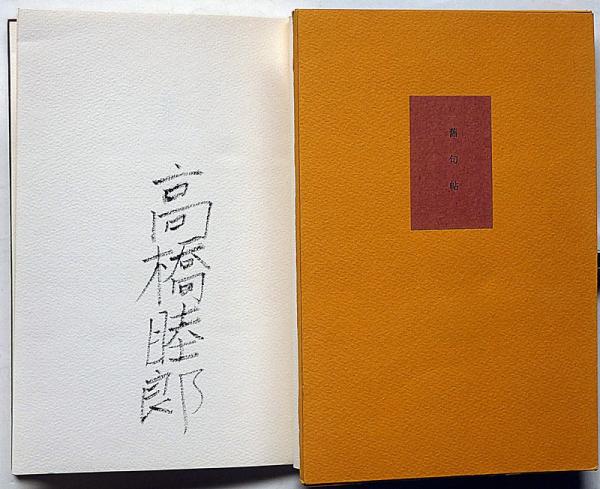 高橋睦郎
舊句帖